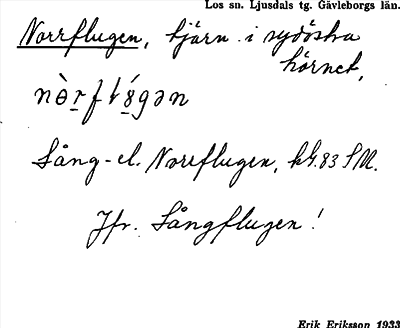 Los sn. Ljusdals tg. Gävleborgs län.
Norrflugen, tjärn i sydöstra
hörnet,
Sång- el. Norrflugen, kbl. 83 SM.
Jfr. Sångflugen!
Erik Eriksson 1933